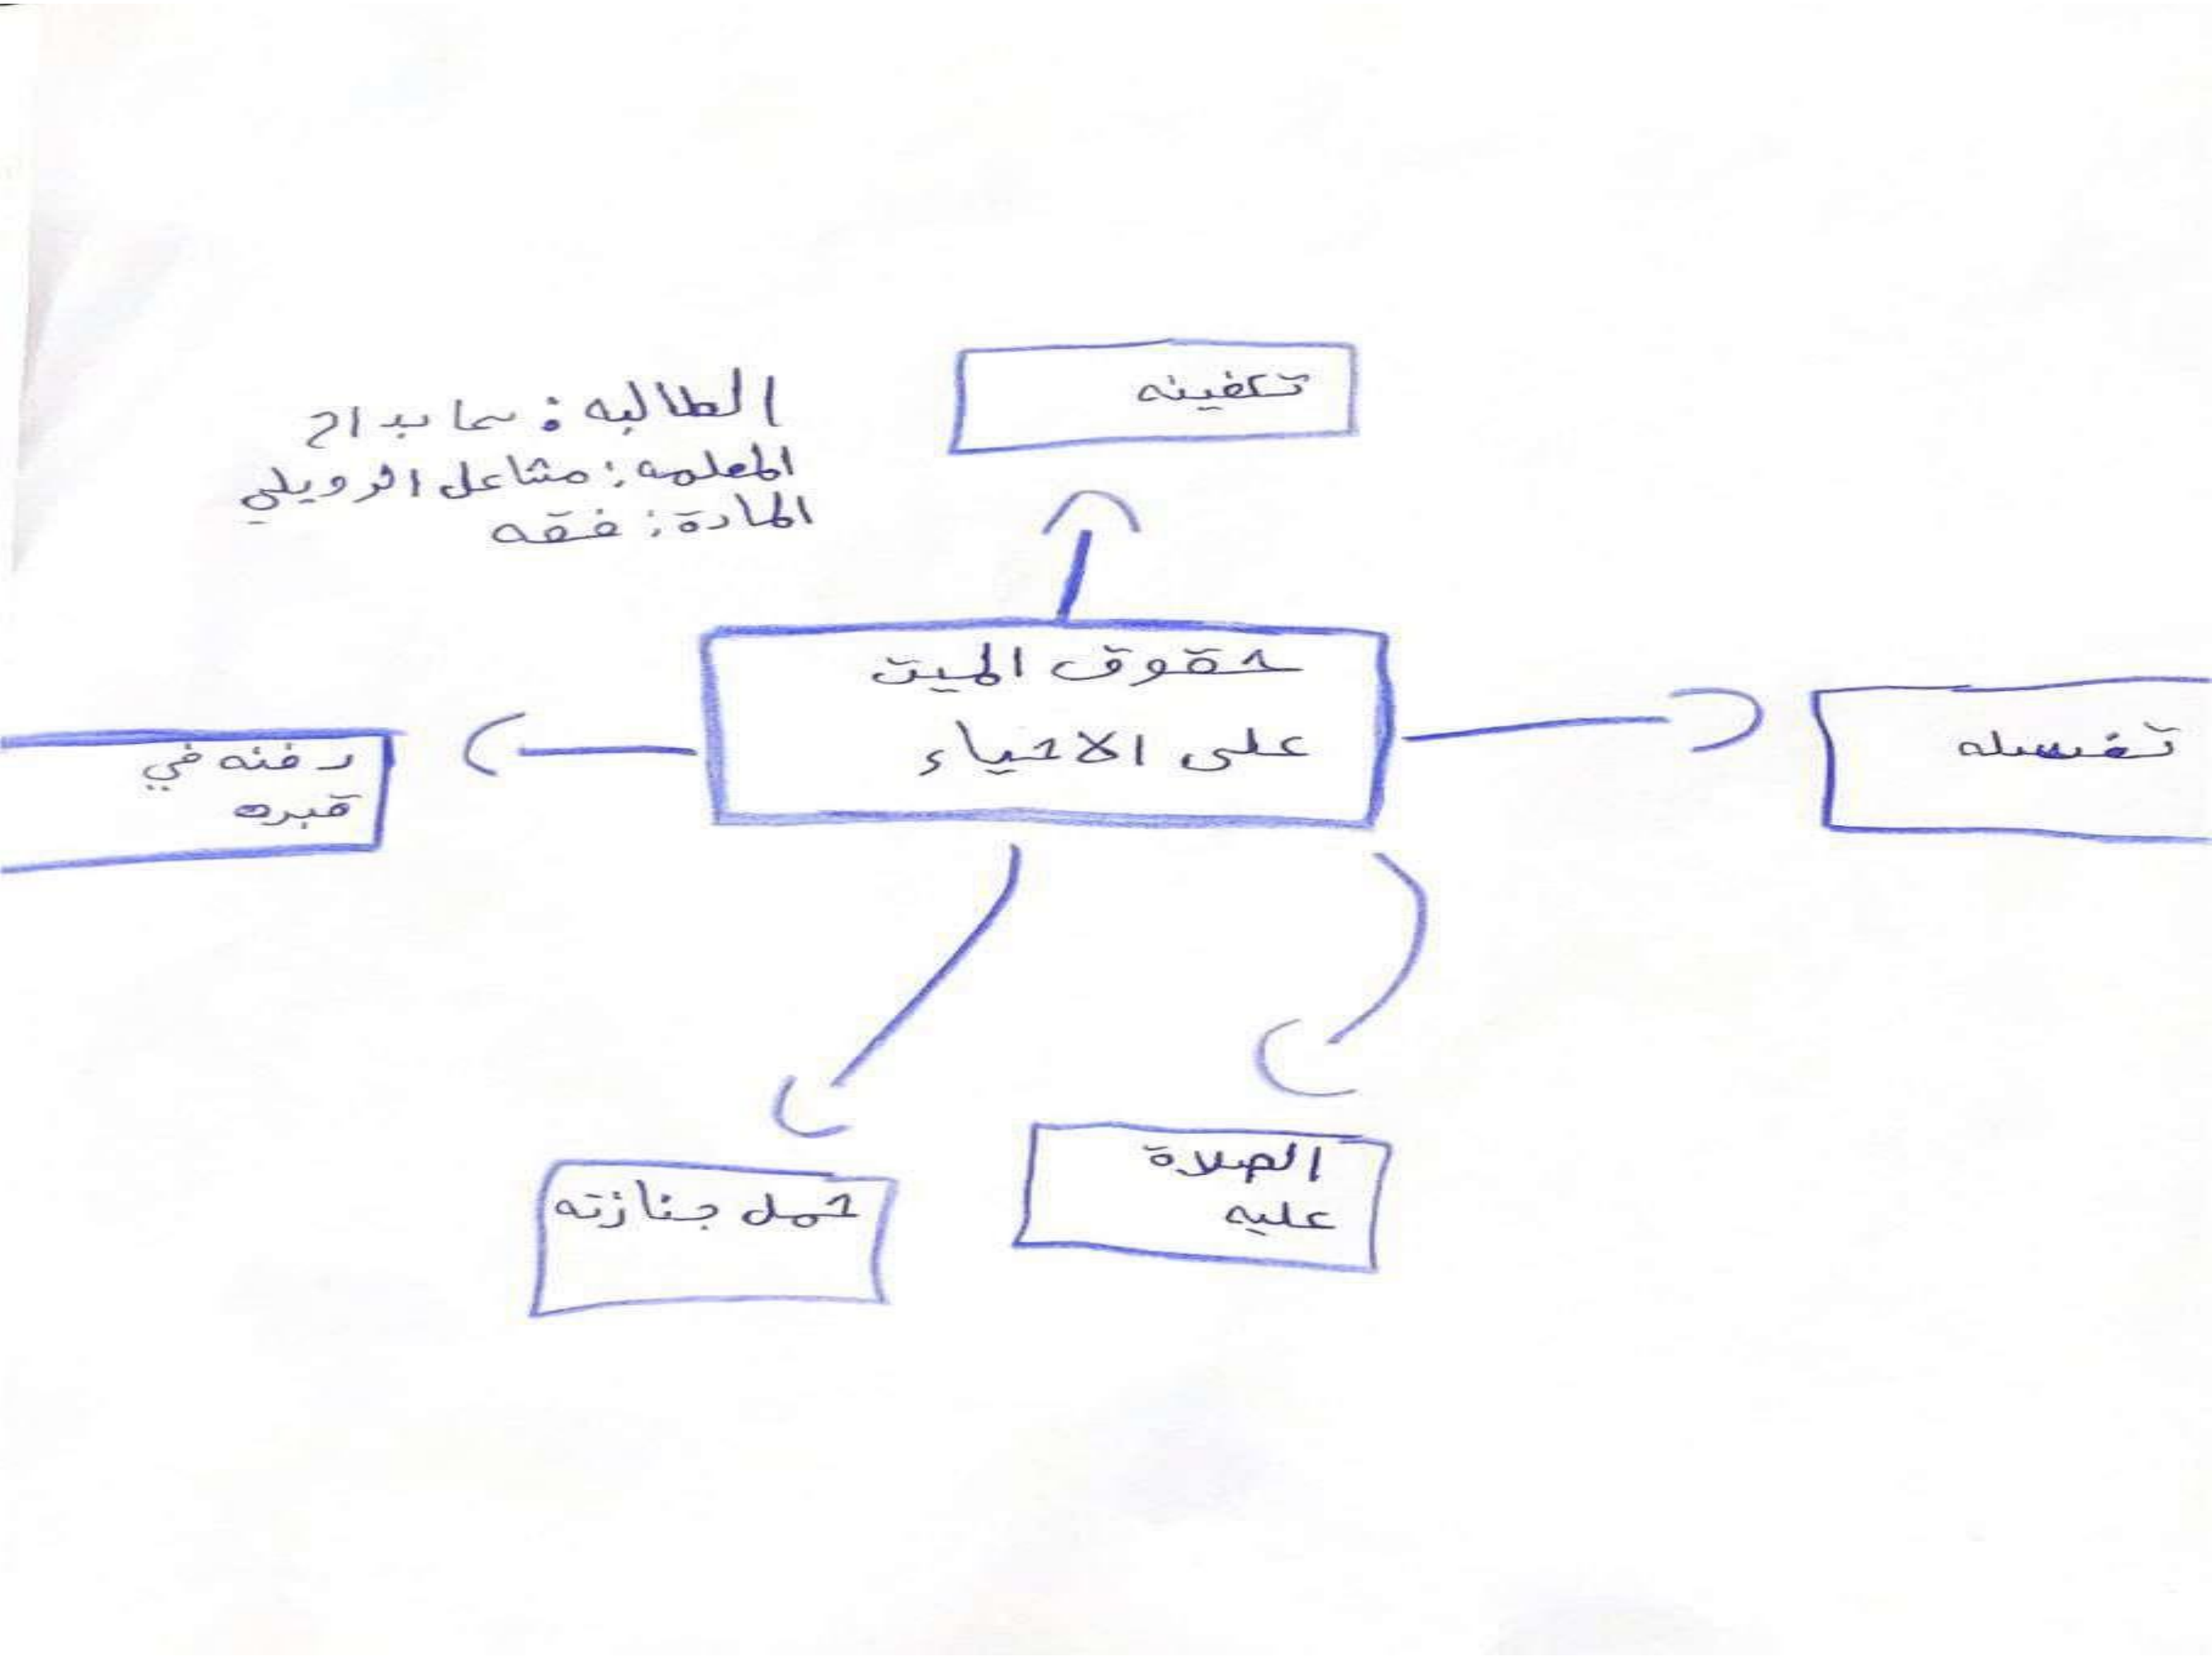 تكفينه
الطالبه : سما بداح
المعلمه : مشاعل الرويلي
المادة : فقه
حقوق الميت
على الاحياء
تغسله
دفنه في
قبره
الصلاة
عليه
حمل جنازته